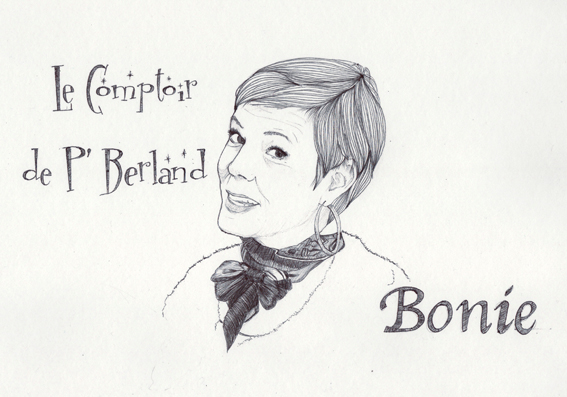 Le Comptoir
de P' Berland
Bonie